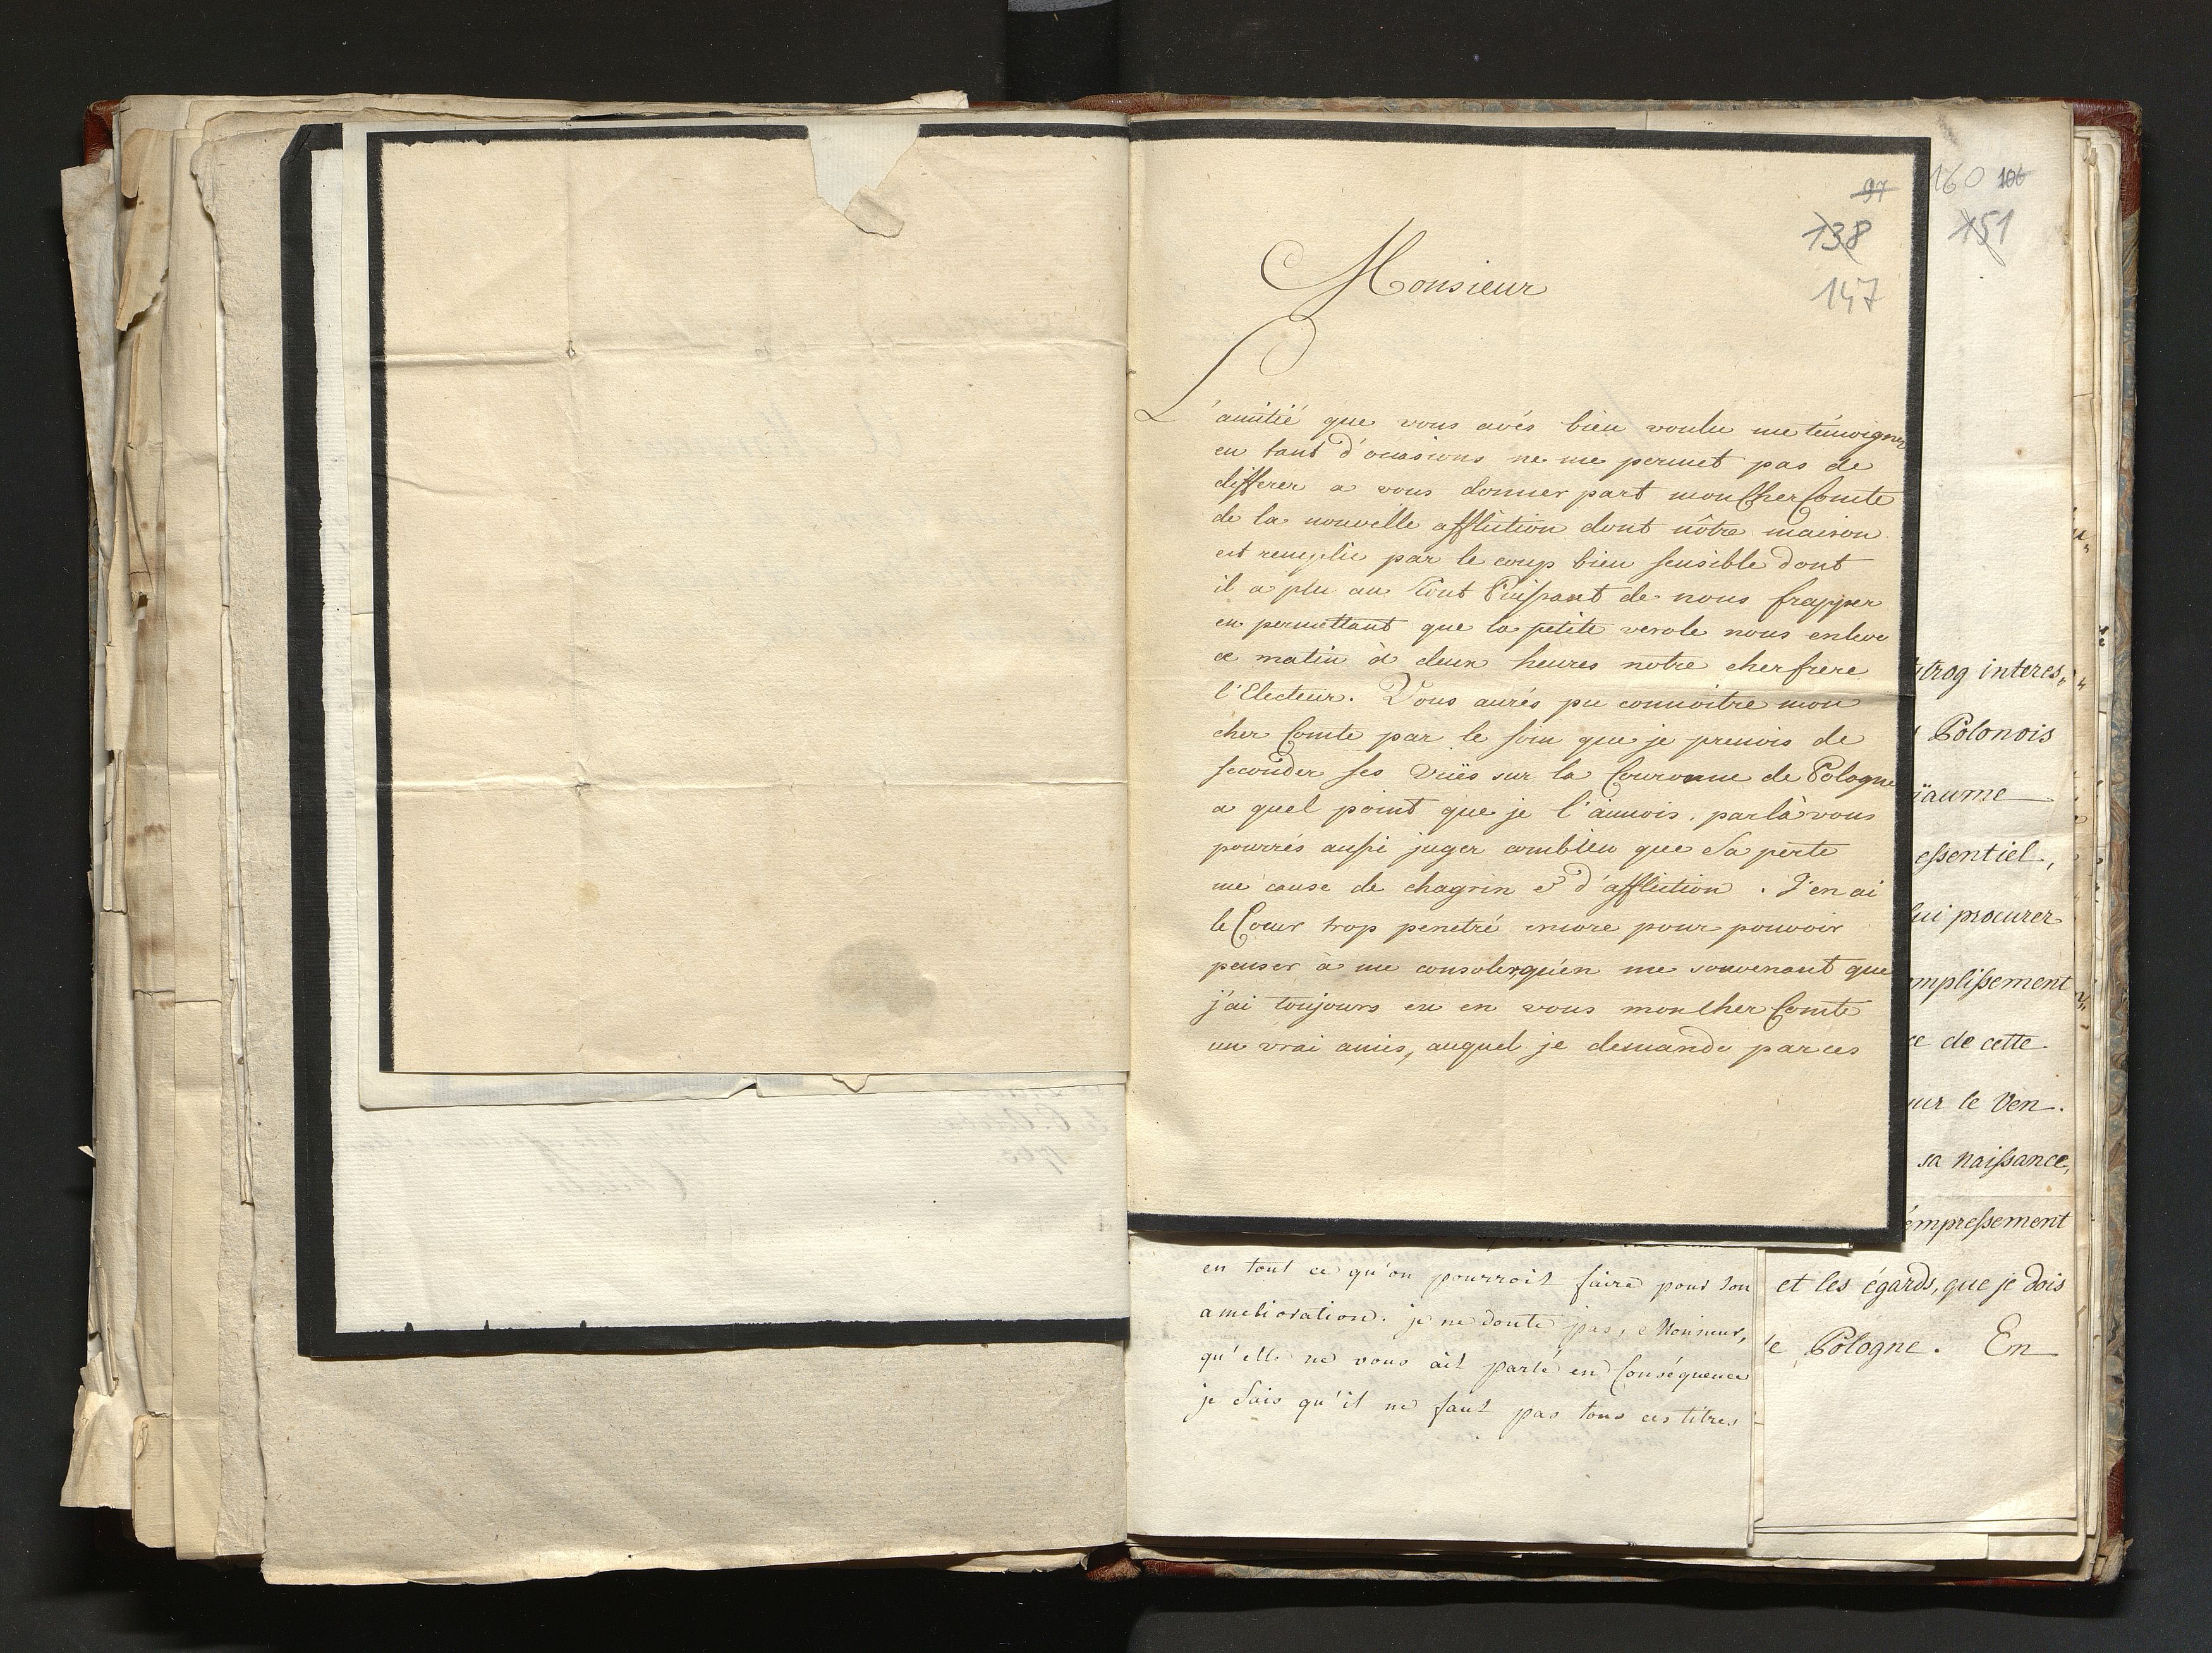 97
138
147
160 106
151
Monsieur
L'amitié que vous avés bien voulu me témoigner
en tant d'ocasions ne me permet pas de
differer a vous donner part mon Cher Comte
de la nouvelle affliction dont nôtre maison
est remplie par le coup bien sensible dont
il a plu au Tout Puissant de nous frapper
en permettant que la petite verole nous enleve
ce matin à deux heures notre cher frere
l'Electeur. Vous aurés pu connoitre mon
cher Comte par le soin que je prenois de
seconder ses vuës sur la Couronne de Pologne
a quel point que je l'aimois. par là vous
pourrés aussi juger combien que sa perte
me cause de chagrin & d'affliction. J'en ai
le Coeur trop penetré encore pour pouvoir
penser à me consoler qu'en me souvenant que
j'ai toujours eu en vous mon cher Comte
un vrai amis, auquel je demande par ces
en tout ce qu'on pourroit faire pour son
amelioration. je ne doute pas, Monsieur,
qu'elle ne vous ait parlé en Conséquence
je sais qu'il ne faut pas tous ces titres
trog interes„
Polonois
ïaume
essentiel,
lui procurer
mplissement
ce de cette
ur le Ven.
sa naissance,
empressement
et les égards, que je dois
de Pologne. En